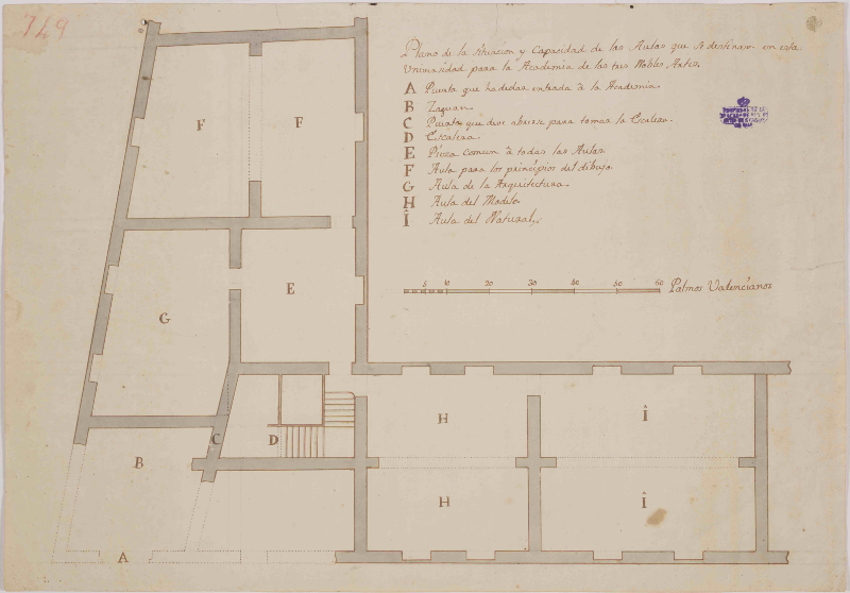 749
Plano de la situacion y Capacidad de las Aulas que se destinan en esta
Universidad para la Academia de las tres Nobles Artes.
A Puerta que ha de dar entrada à la Academia.
B Zaguan.
C Puerta que deve abrirse para tomar la Escalera.
D Escalera.
E Pieza comun à todas las Aulas
F Aula para los principios del dibujo
G Aula de la Arquitectura.
H Aula del Modelo
Î Aula del Natural.
5 10 20 30 40 50 60 Palmos Valencianos
F F
G E
H Î
C D
B
H Î
A